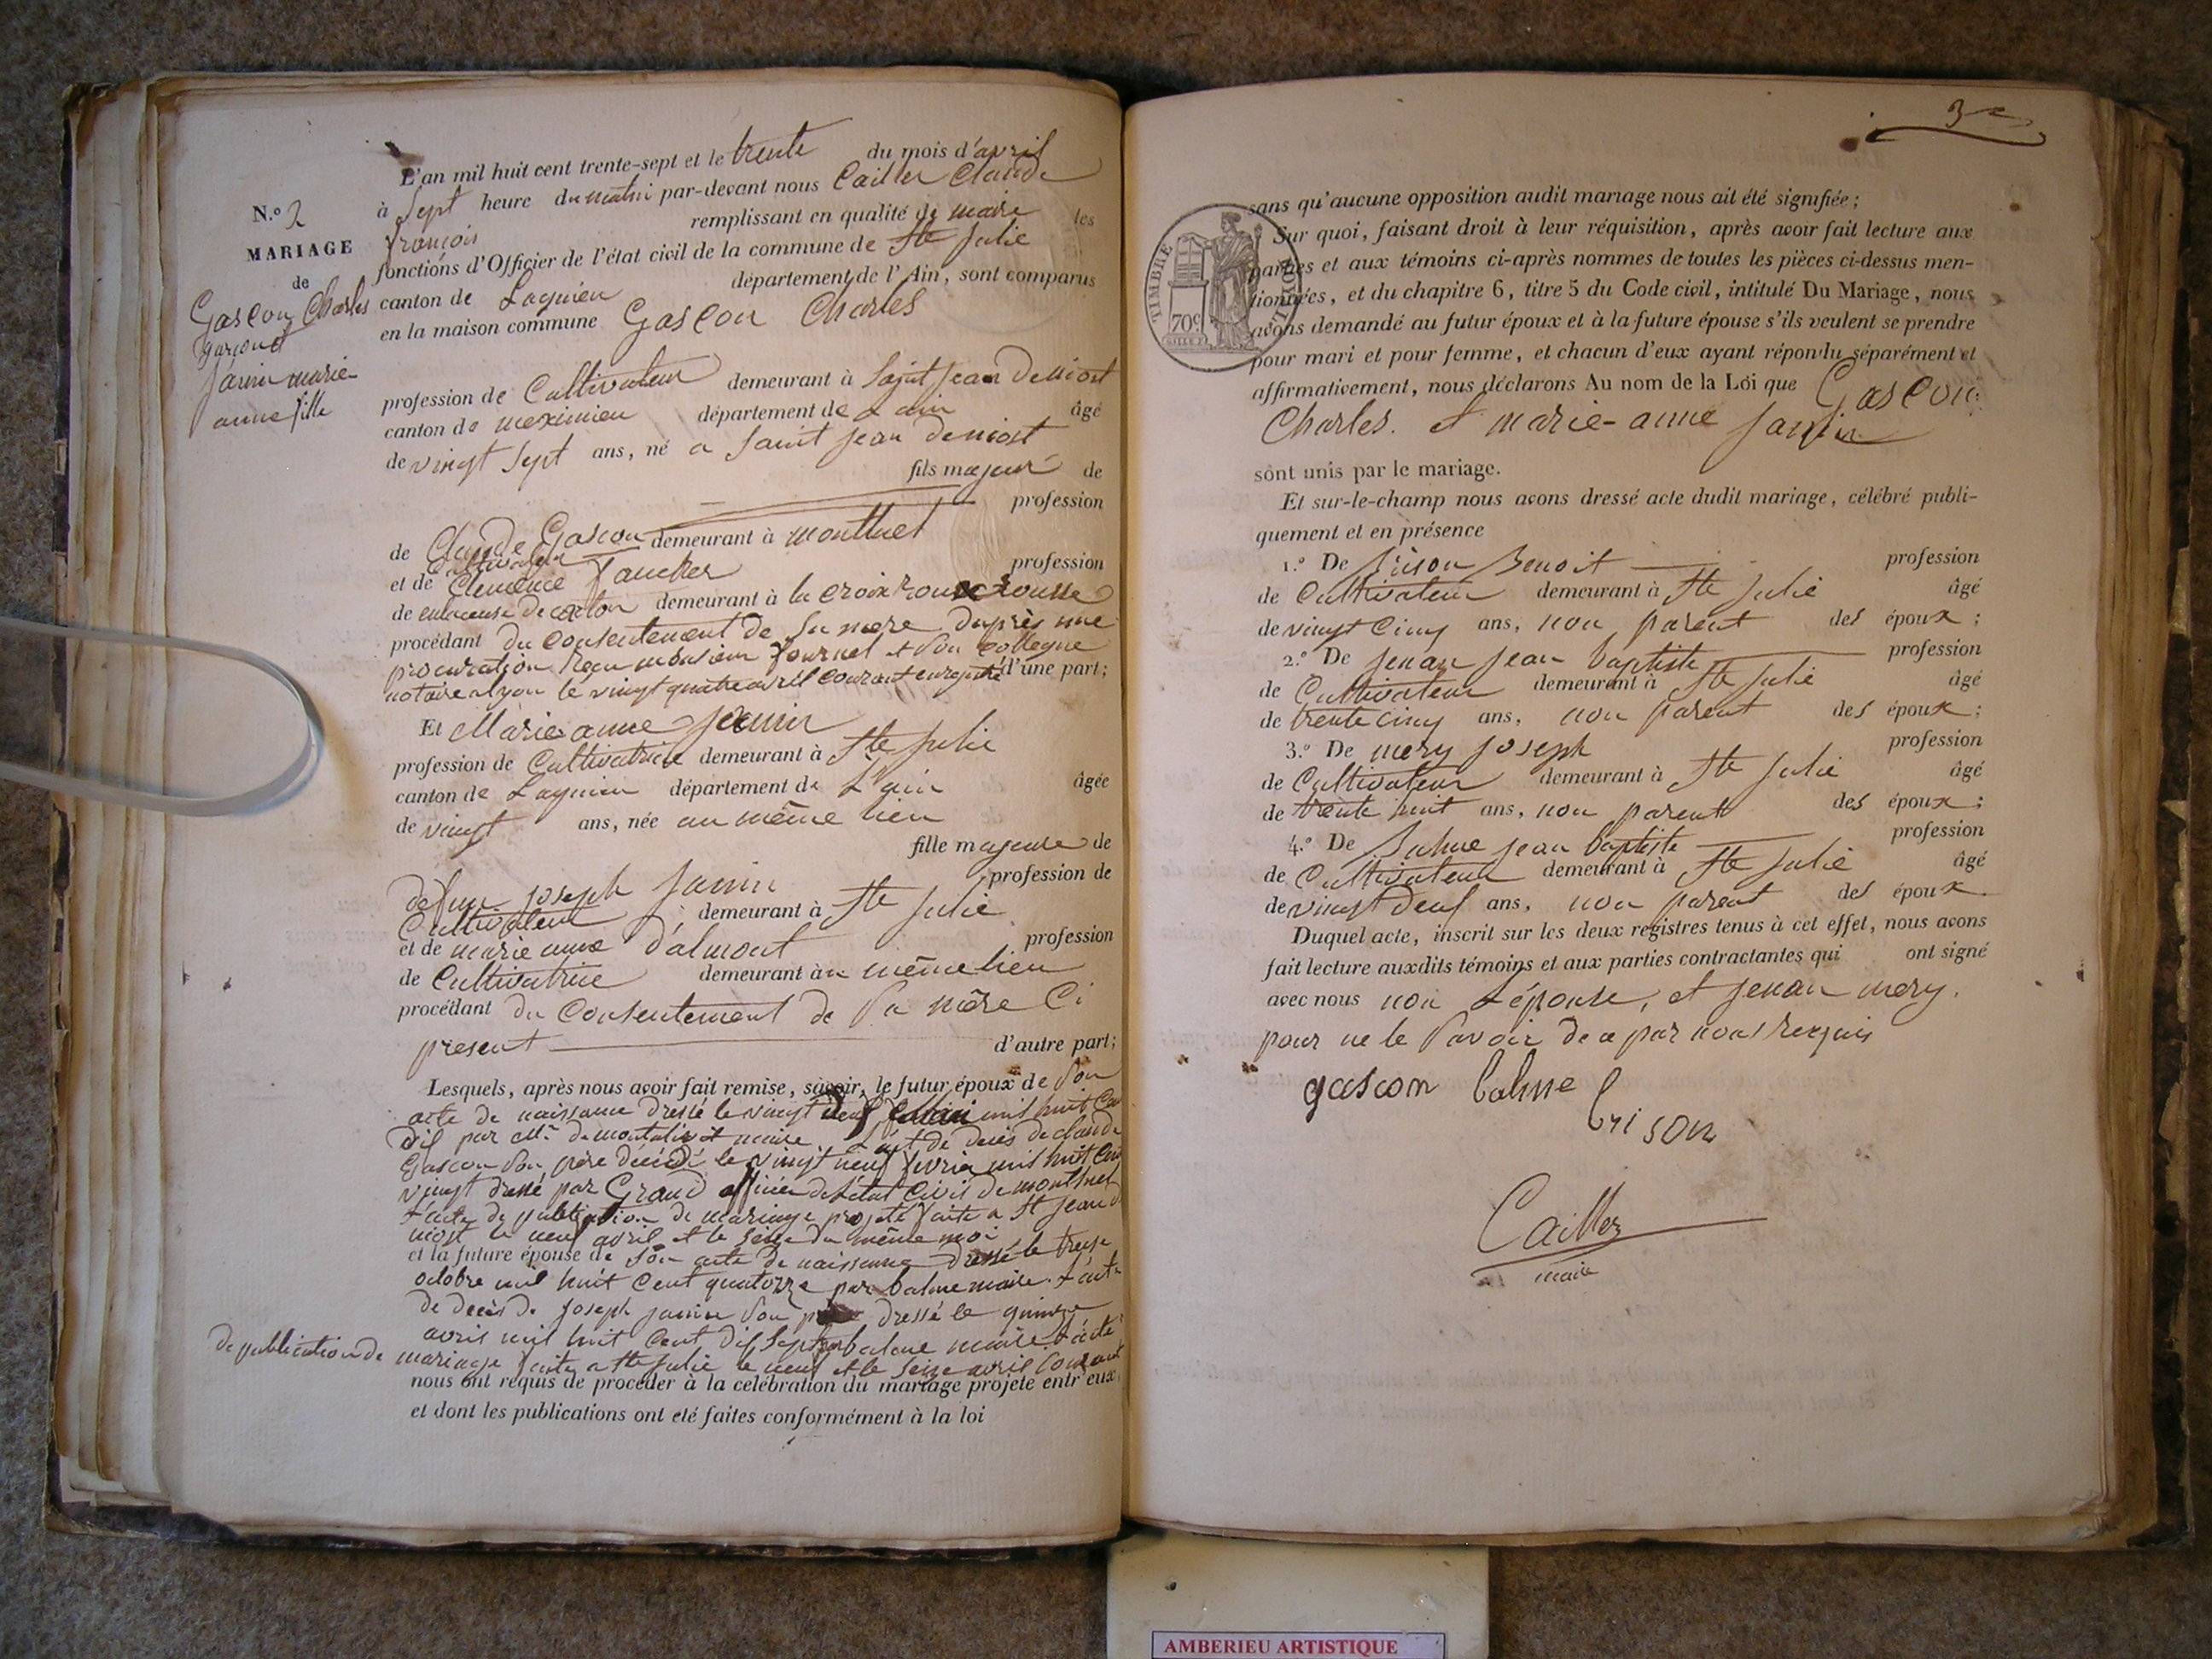 N.o 2
MARIAGE
de
Gascon Charles
garçon et
Janin marie
anne fille
L'an mil huit cent trente-sept et le trente du mois d'avril
à Sept heure du matin par-devant nous Cailler Claude
françois remplissant en qualité de maire les
fonctions d'Officier de l'état civil de la commune de Ste Julie
canton de Lagnieu département de l'Ain, sont comparus
en la maison commune Gascon Charles
profession de Cultivateur demeurant à Saint Jean De niost
canton de meximieu département de L'ain âgé
de vingt Sept ans, né a Saint Jean De niost
fils majeur de
profession
de Claude Gascon demeurant à montluel
Cultivateur
et de Clemence profession
de demeurant à la croix rousse
procédant du Consentement de Sa mere Daprès une
procuration Recu monsieur fournel et Son Collegue
notaire a lyon le vingt quatre avril Courant enregistré d'une part;
Et Marie anne Janin
profession de Cultivatrice demeurant à Ste Julie
canton de Lagnieu département de L'ain âgée
de vingt ans, née au même lieu
fille majeure de
defun Joseph Janin profession de
Cultivateur demeurant à Ste Julie
et de marie anne D'almont profession
de Cultivatrice demeurant au même lieu
procédant du Consentement de Sa mère Ci
present d'autre part;
Lesquels, après nous avoir fait remise, savoir, le futur époux de Son
acte de naissance Dressé le vingt mil huit Cen
Dix par Mr. De montalivet maire. L'acte De Deces De Claude
Gascon Son père Décédé le vingt neuf fevrier mil huit Cent
vingt Dressé par Grand officier De l'état Civil De montluel
L'acte De publication De mariage projeté faite a St Jean D
niost le neuf avril et le Seize du même moi
et la future épouse de Son acte De naissance Dressé le treize
octobre mil huit Cent quatorze par balme maire. L'acte
De Decès De Joseph Janin Son père Dressé le quinze
avril mil huit Cent Dix Sept par balme maire L'acte
de publication de mariage faite a Ste Julie le neuf et le Seize avril Courant
nous ont requis de procéder à la célébration du mariage projeté entr'eux,
et dont les publications ont été faites conformément à la loi
3
TIMBRE
70c
sans qu'aucune opposition audit mariage nous ait été signifiée;
Sur quoi, faisant droit à leur réquisition, après avoir fait lecture aux
parties et aux témoins ci-après nommés de toutes les pièces ci-dessus men-
tionnées, et du chapitre 6, titre 5 du Code civil, intitulé Du Mariage, nous
avons demandé au futur époux et à la future épouse s'ils veulent se prendre
pour mari et pour femme, et chacun d'eux ayant répondu séparément et
affirmativement, nous déclarons Au nom de la Loi que Gascon
Charles. et marie-anne Janin
sont unis par le mariage.
Et sur-le-champ nous avons dressé acte dudit mariage, célébré publi-
quement et en présence
1.o De Brison Benoit profession
de Cultivateur demeurant à Ste Julie âgé
de vingt Cinq ans, non parent des époux;
2.o De Jenan Jean baptiste profession
de Cultivateur demeurant à Ste Julie âgé
de trente cinq ans, non parent des époux;
3.o De mery Joseph profession
de Cultivateur demeurant à Ste Julie âgé
de trente huit ans, non parent des époux;
4.o De Balme Jean baptiste profession
de Cultivateur demeurant à Ste Julie âgé
de vingt Deux ans, non parent des époux.
Duquel acte, inscrit sur les deux registres tenus à cet effet, nous avons
fait lecture auxdits témoins et aux parties contractantes qui ont signé
avec nous non L'épouse, et Jenan mery.
pour ne le Savoir De ce par nous Requis
gascon balme
brison
Cailler
maire
AMBERIEU ARTISTIQUE